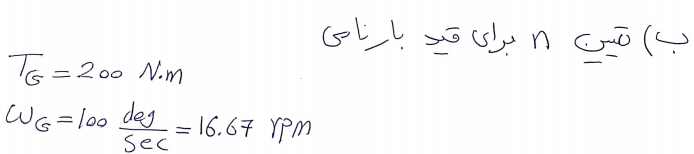 ب) تعیین n برای قید بار نامی
T_G = 200 N.m
ω_G = 100 deg/sec = 16.67 rpm